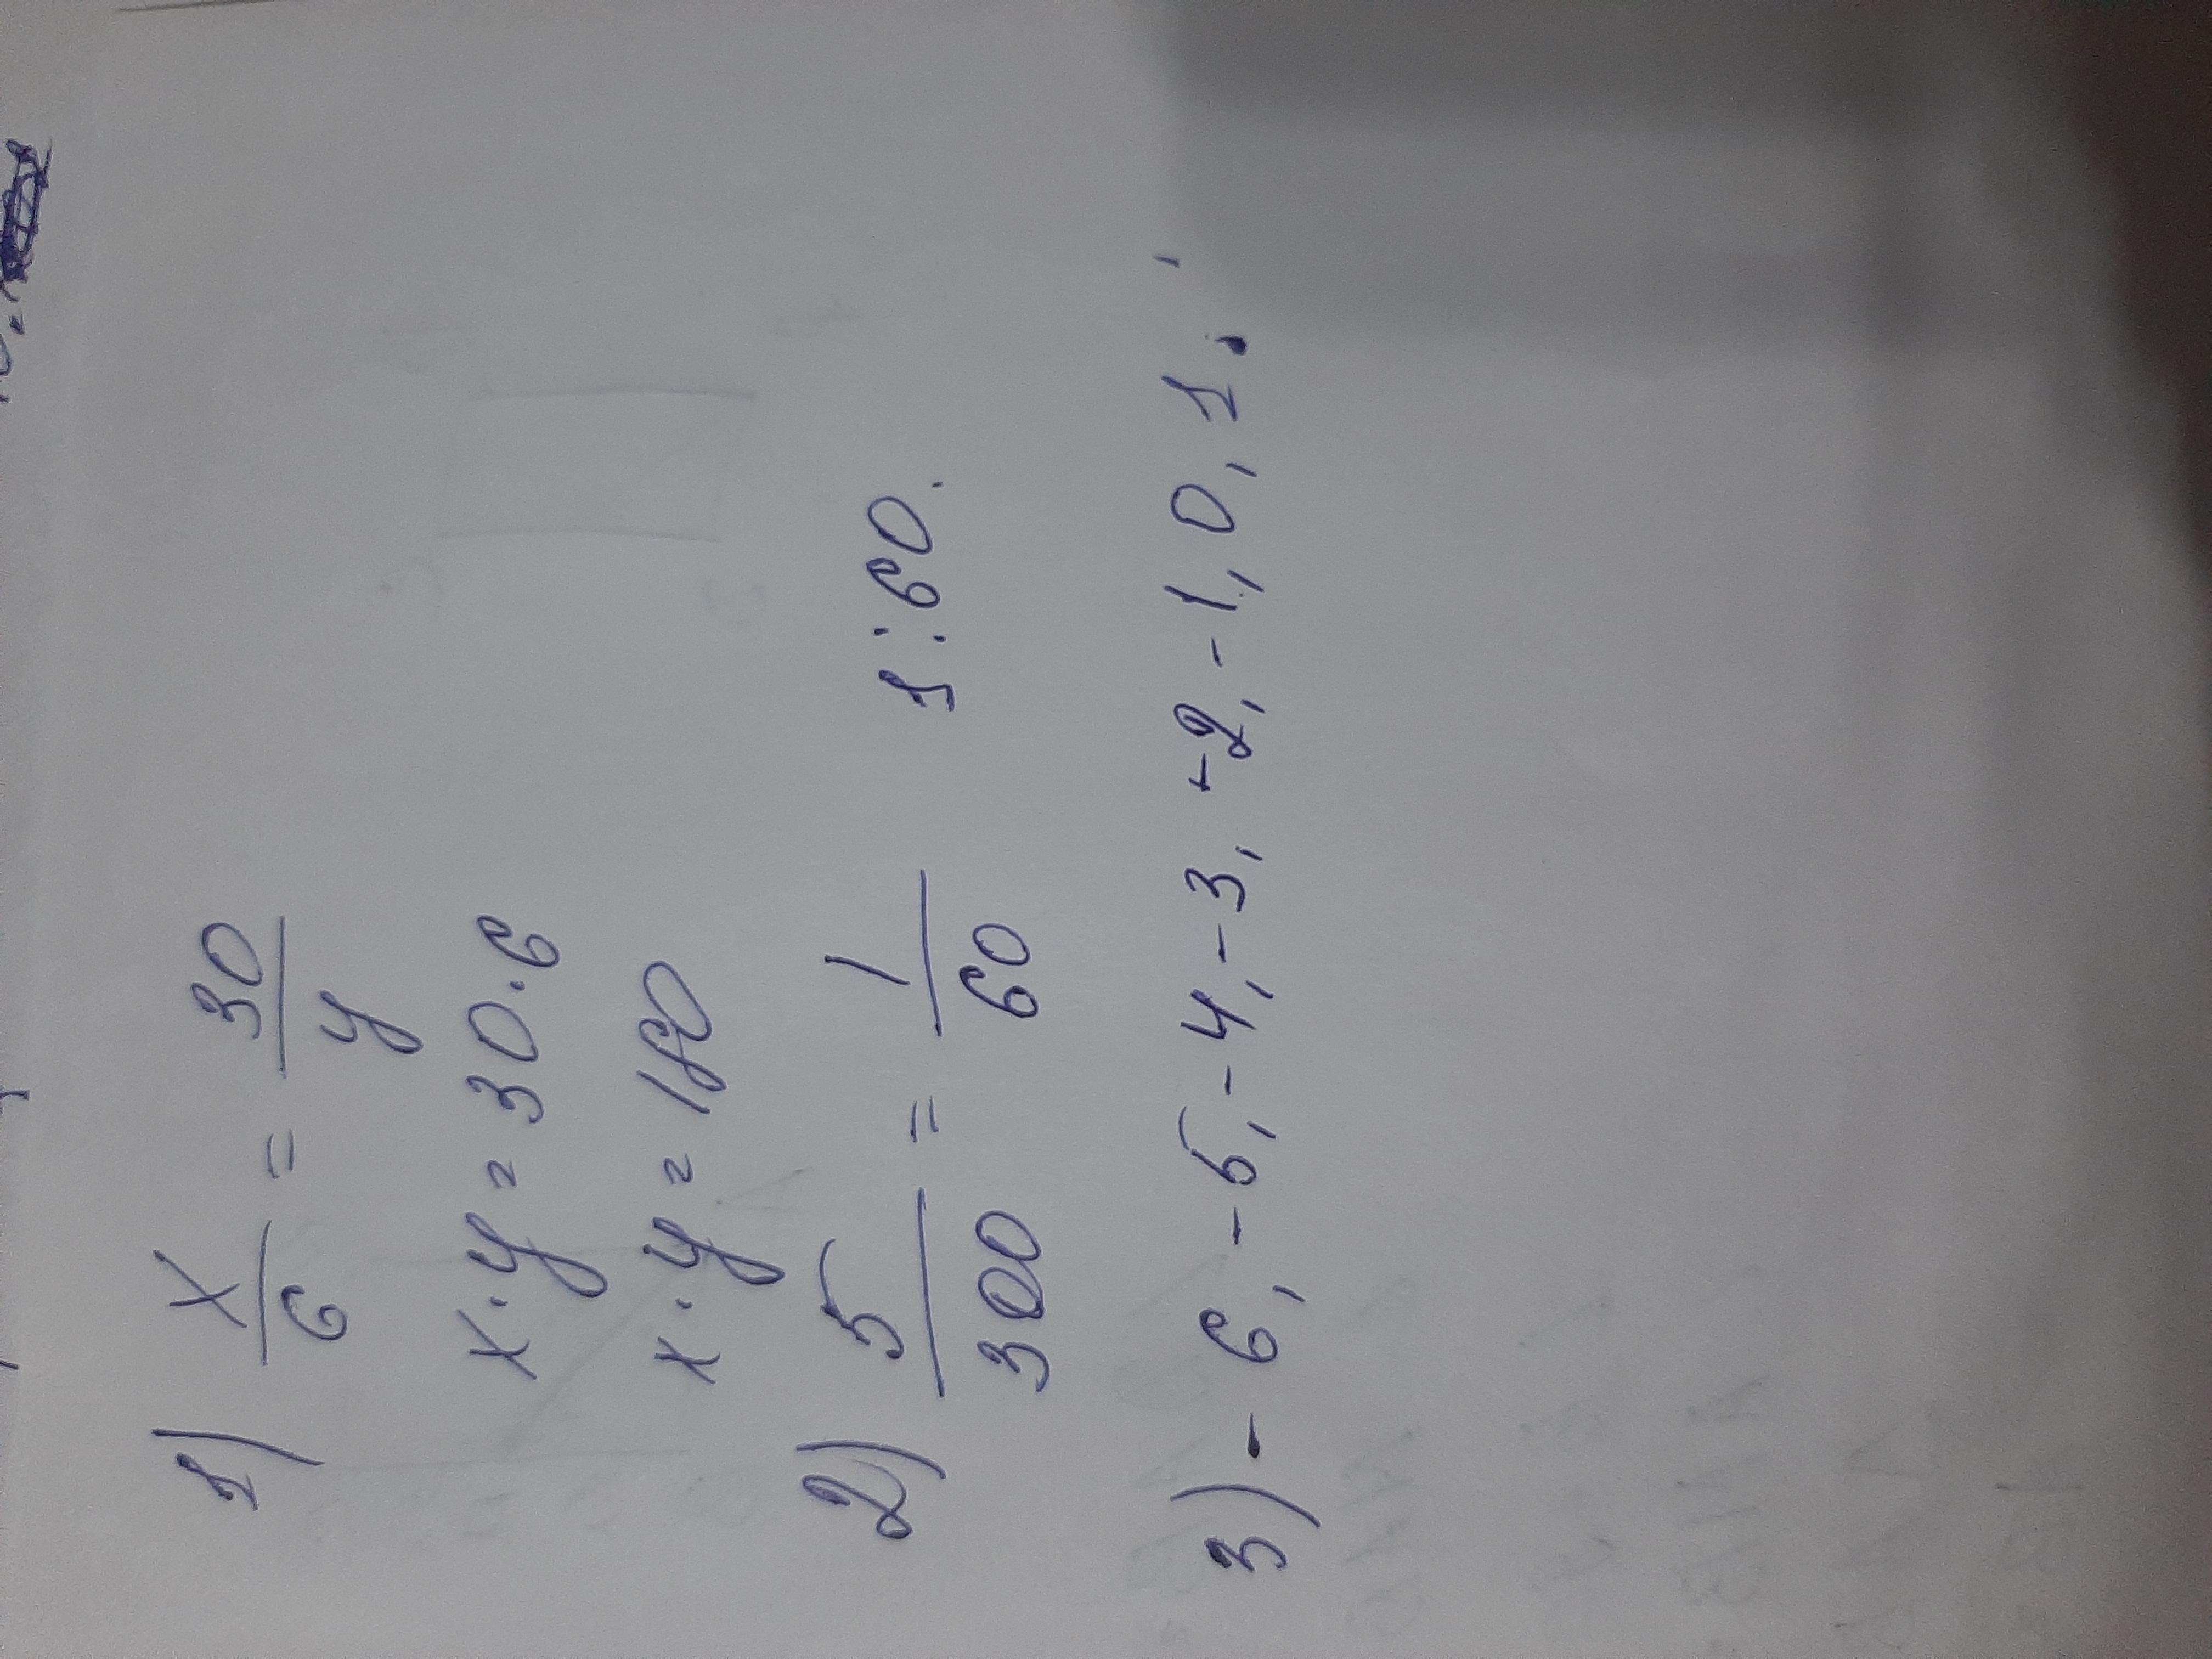 1) x/6 = 30/y
x·y = 30·6
x·y = 180
2) 5/300 = 1/60 1:60.
3) -6, -5, -4, -3, -2, -1, 0, 1.